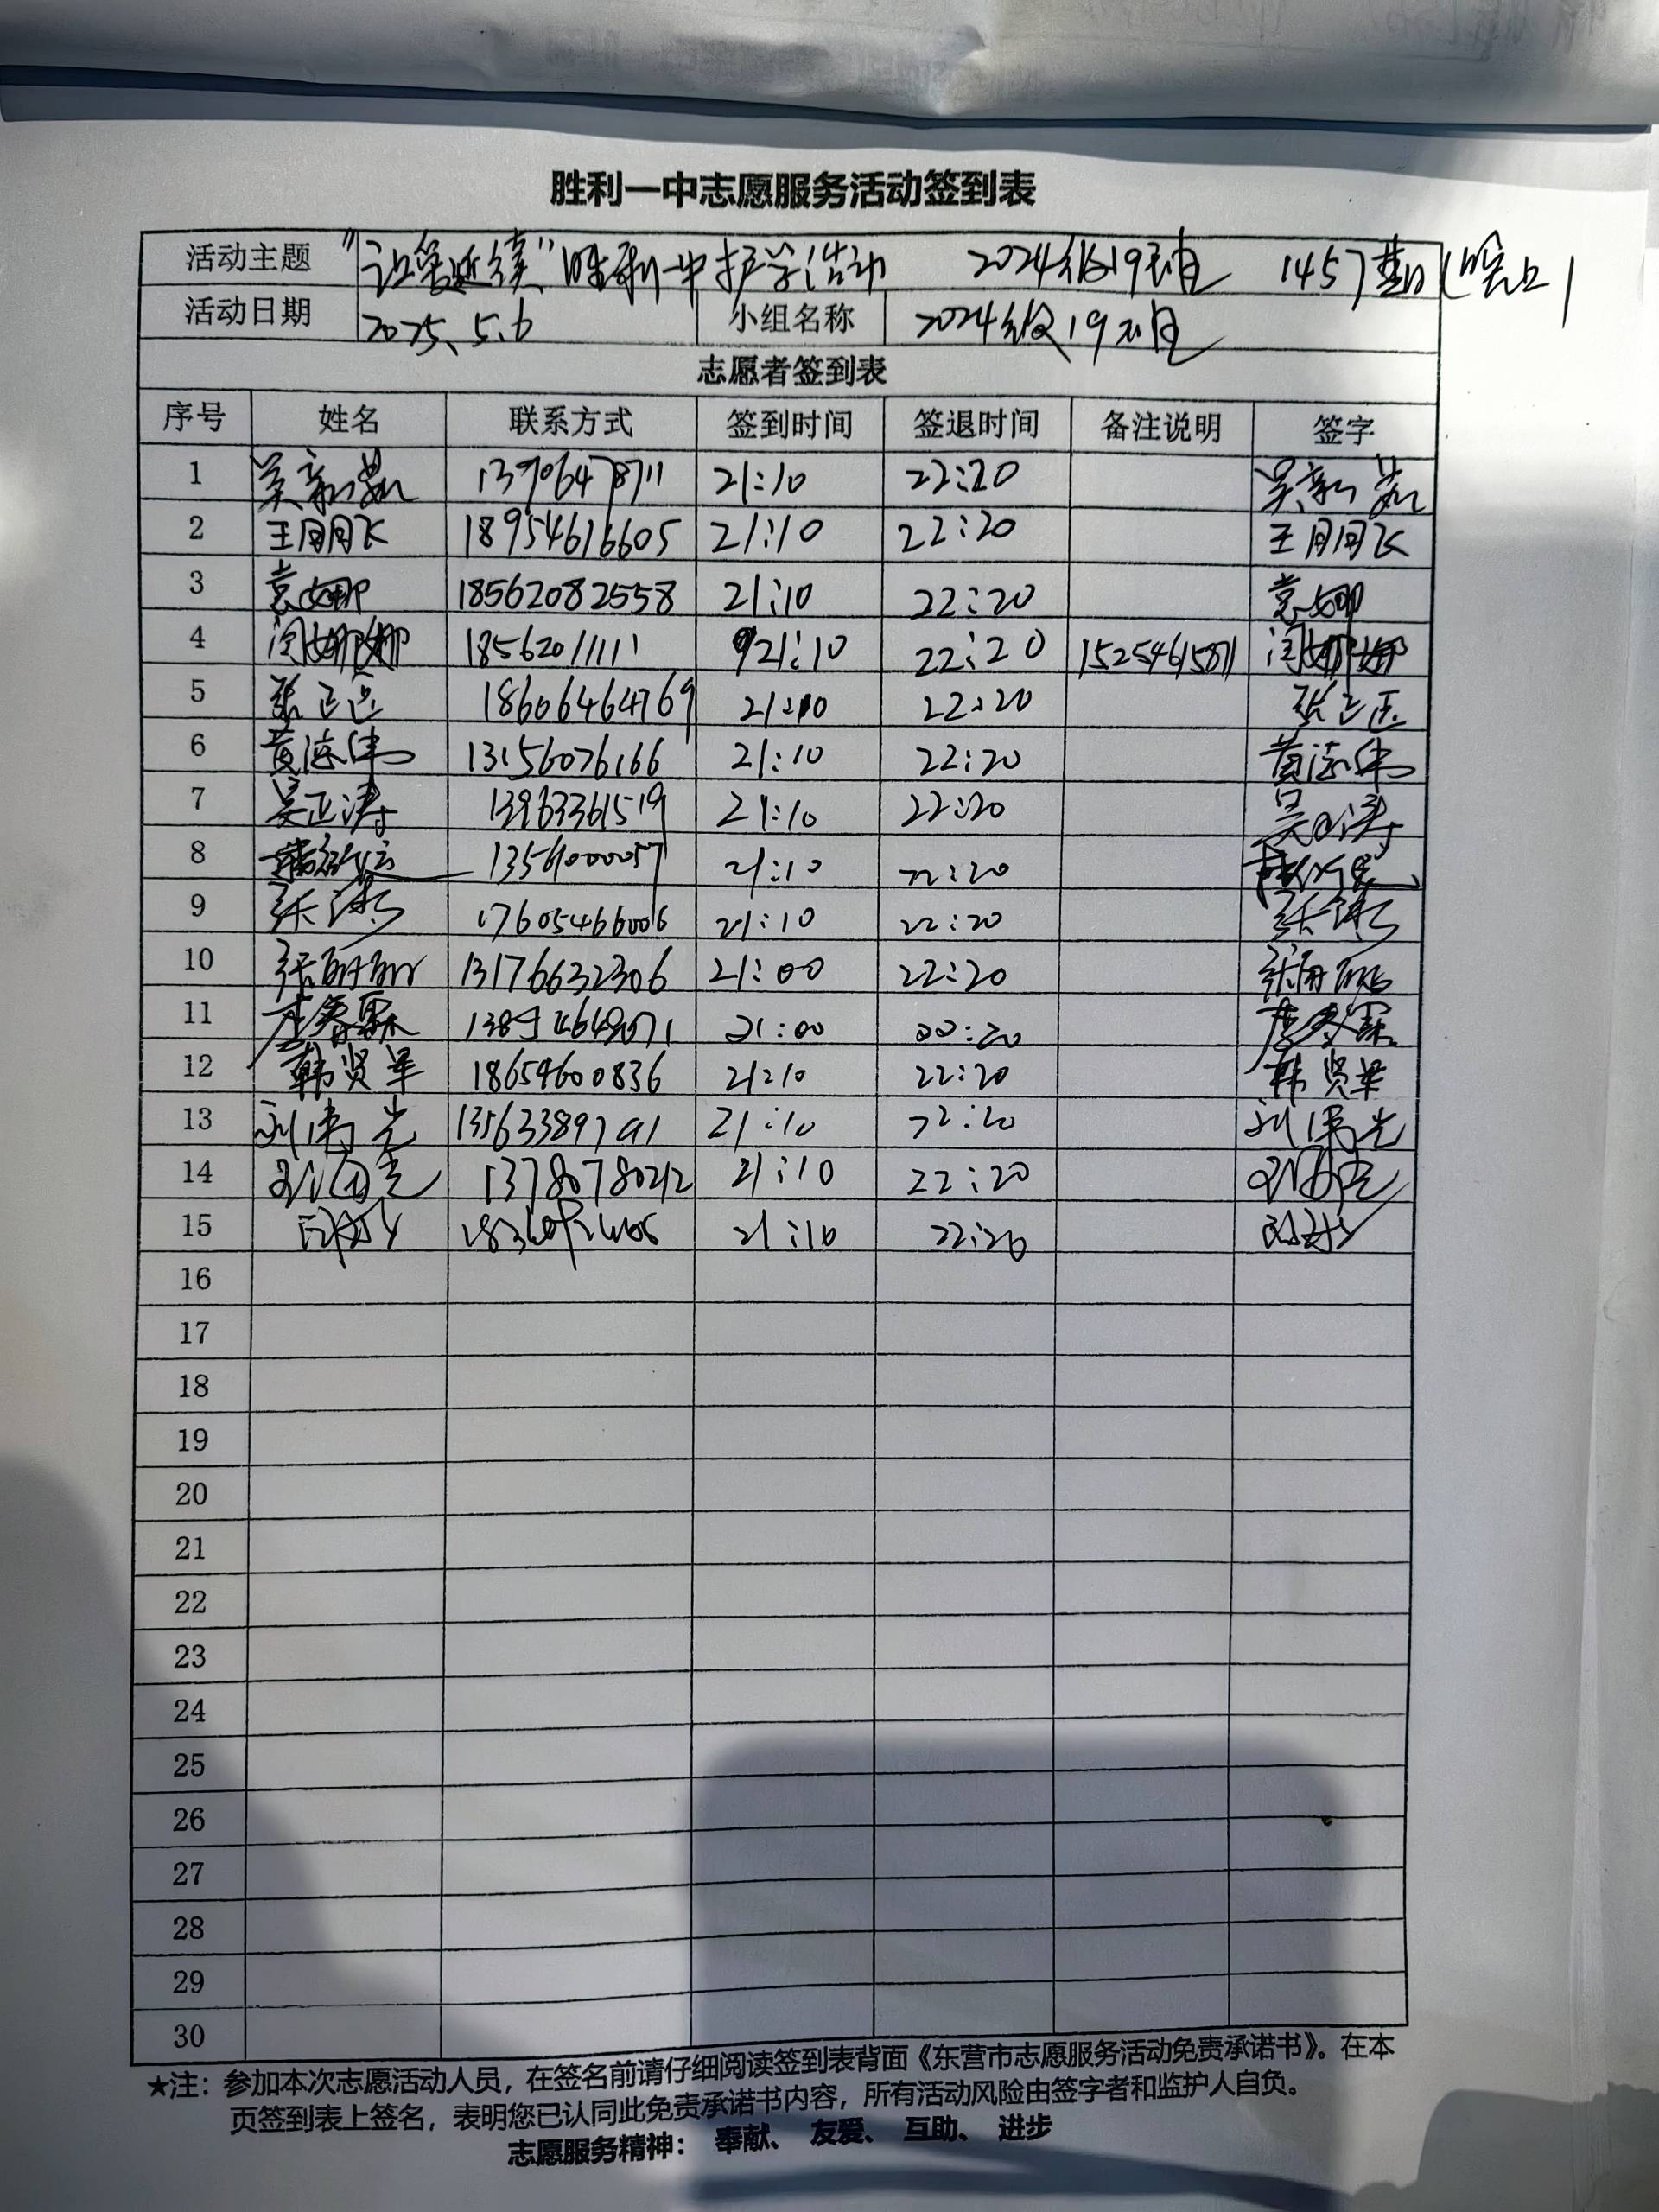 胜利一中志愿服务活动签到表
活动主题 "让爱延续"胜利一中护学活动 2024级19班 1457期(晚上)
活动日期 2025.5.6 小组名称 2024级19班
志愿者签到表
序号 姓名 联系方式 签到时间 签退时间 备注说明 签字
1 13906478711 21:10 22:20
2 王月月飞 18954616605 21:10 22:20 王月月飞
3 袁娜 18562082558 21:10 22:20 袁娜
4 闫娜娜 18562011111 21:10 22:20 15254615871 闫娜娜
5 18606464769 21:10 22:20
6 13156076166 21:10 22:20
7 吴正涛 13963361519 21:10 22:20 吴正涛
8 21:10 22:20
9 张涛 17605466006 21:10 22:20 张涛
10 张丽丽 13176632306 21:00 22:20 张丽丽
11 21:00 22:20
12 韩贤军 18654600836 21:10 22:20 韩贤军
13 21:10 22:20
14 13780780212 21:10 22:20
15 21:10 22:20
16
17
18
19
20
21
22
23
24
25
26
27
28
29
30
★注：参加本次志愿活动人员，在签名前请仔细阅读签到表背面《东营市志愿服务活动免责承诺书》。在本
页签到表上签名，表明您已认同此免责承诺书内容，所有活动风险由签字者和监护人自负。
志愿服务精神： 奉献、 友爱、 互助、 进步